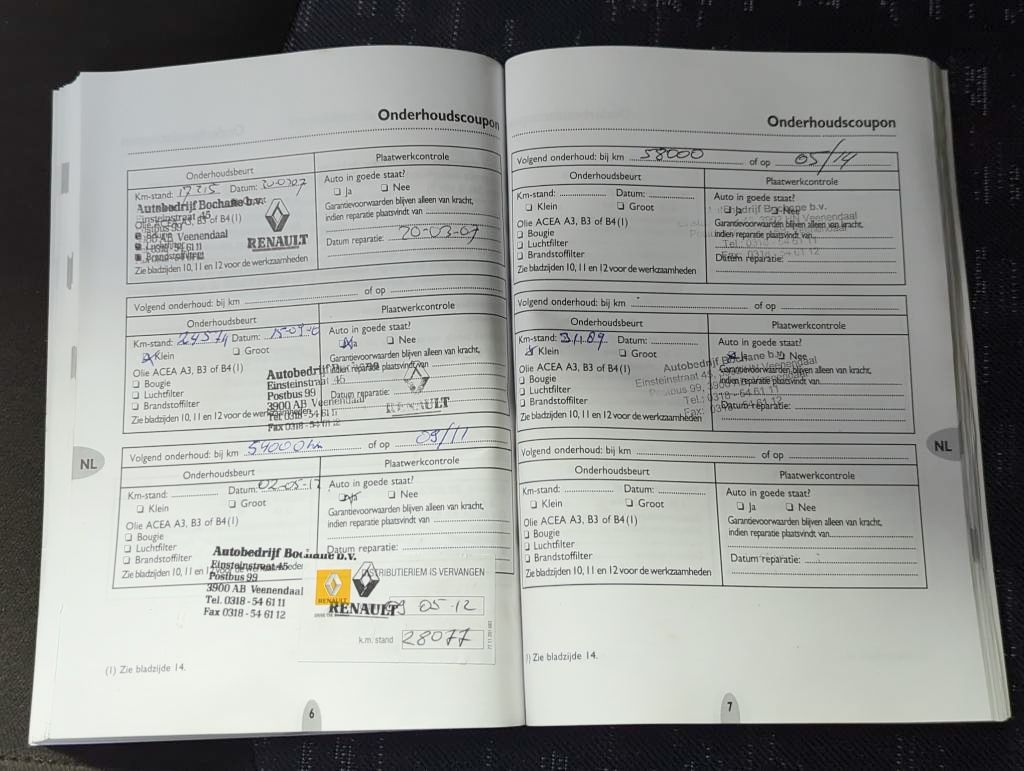 Onderhoudscoupon
Onderhoudsbeurt
Plaatwerkcontrole
Km-stand: 17215 Datum: 20-03-07
Auto in goede staat?
❏ Ja ❏ Nee
Autobedrijf Bochane b.v.
Einsteinstraat 45
Olie ACEA A3, B3 of B4(1)
Postbus 99
3900 AB Veenendaal
0318 - 54 61 11
Brandstoffilter
RENAULT
Garantievoorwaarden blijven alleen van kracht,
indien reparatie plaatsvindt van
Datum reparatie: 20-03-07
Zie bladzijden 10, 11 en 12 voor de werkzaamheden
Volgend onderhoud: bij km of op
Onderhoudsbeurt
Plaatwerkcontrole
Km-stand: 24574 Datum: 15-09-
Auto in goede staat?
Klein ❏ Groot
Ja ❏ Nee
Olie ACEA A3, B3 of B4(1)
❏ Bougie
❏ Luchtfilter
❏ Brandstoffilter
Garantievoorwaarden blijven alleen van kracht,
indien reparatie plaatsvindt van
Datum reparatie:
Zie bladzijden 10, 11 en 12 voor de werkzaamheden
Autobedrijf
Einsteinstraat 45
Postbus 99
3900 AB Veenendaal
Tel. 0318 - 54 61 11
Fax 0318 - 54 61 12
RENAULT
Volgend onderhoud: bij km 54000 km of op 09/11
Onderhoudsbeurt
Plaatwerkcontrole
Km-stand: Datum: 02-05-12
Auto in goede staat?
❏ Klein ❏ Groot
Ja ❏ Nee
Olie ACEA A3, B3 of B4(1)
❏ Bougie
❏ Luchtfilter
❏ Brandstoffilter
Garantievoorwaarden blijven alleen van kracht,
indien reparatie plaatsvindt van
Datum reparatie:
Zie bladzijden 10, 11 en 12 voor de werkzaamheden
Autobedrijf Bochane b.v.
Einsteinstraat 45
Postbus 99
3900 AB Veenendaal
Tel. 0318 - 54 61 11
Fax 0318 - 54 61 12
DISTRIBUTIERIEM IS VERVANGEN
RENAULT
RENAULT
09 05-12
k.m. stand 28077
(1) Zie bladzijde 14.
NL
6
Onderhoudscoupon
Volgend onderhoud: bij km 58000 of op 05/14
Onderhoudsbeurt
Plaatwerkcontrole
Km-stand: Datum:
Auto in goede staat?
❏ Klein ❏ Groot
❏ Ja ❏ Nee
Olie ACEA A3, B3 of B4(1)
❏ Bougie
❏ Luchtfilter
❏ Brandstoffilter
Garantievoorwaarden blijven alleen van kracht,
indien reparatie plaatsvindt van
Datum reparatie:
Zie bladzijden 10, 11 en 12 voor de werkzaamheden
Bochane b.v.
Veenendaal
Tel. 0318 - 54 61 11
54 61 12
Volgend onderhoud: bij km of op
Onderhoudsbeurt
Plaatwerkcontrole
Km-stand: Datum:
Auto in goede staat?
Klein ❏ Groot
Ja ❏ Nee
Olie ACEA A3, B3 of B4(1)
❏ Bougie
❏ Luchtfilter
❏ Brandstoffilter
Garantievoorwaarden blijven alleen van kracht,
indien reparatie plaatsvindt van
Datum reparatie:
Zie bladzijden 10, 11 en 12 voor de werkzaamheden
Autobedrijf Bochane b.v.
Einsteinstraat 45, Veenendaal
Postbus 99, 3900 AB
Tel.: 0318 - 54 61 11
Fax: 0318 - 54 61 12
Volgend onderhoud: bij km of op
Onderhoudsbeurt
Plaatwerkcontrole
Km-stand: Datum:
Auto in goede staat?
❏ Klein ❏ Groot
❏ Ja ❏ Nee
Olie ACEA A3, B3 of B4(1)
❏ Bougie
❏ Luchtfilter
❏ Brandstoffilter
Garantievoorwaarden blijven alleen van kracht,
indien reparatie plaatsvindt van
Datum reparatie:
Zie bladzijden 10, 11 en 12 voor de werkzaamheden
) Zie bladzijde 14.
NL
7